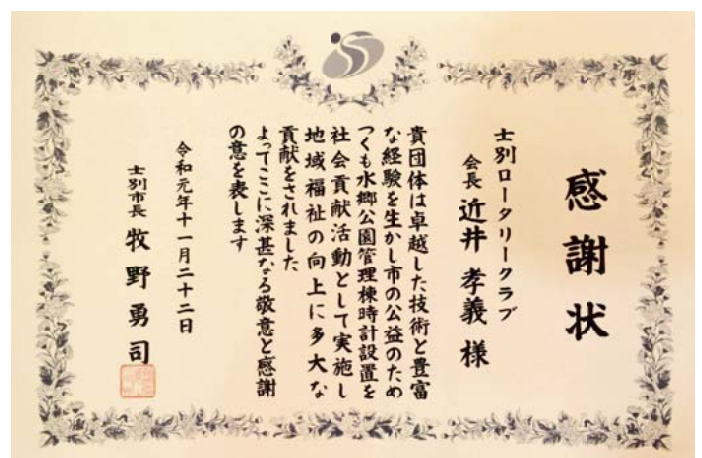 感謝状
士別ロータリークラブ
会長 近井孝義 様
貴団体は卓越した技術と豊富
な経験を生かし市の公益のため
つくも水郷公園管理棟時計設置を
社会貢献活動として実施し
地域福祉の向上に多大な
貢献をされました
よってここに深甚なる敬意と感謝
の意を表します
令和元年十一月二十二日
士別市長 牧野勇司